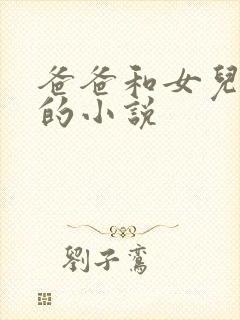 爸爸和女兒
的小說
劉子鸞